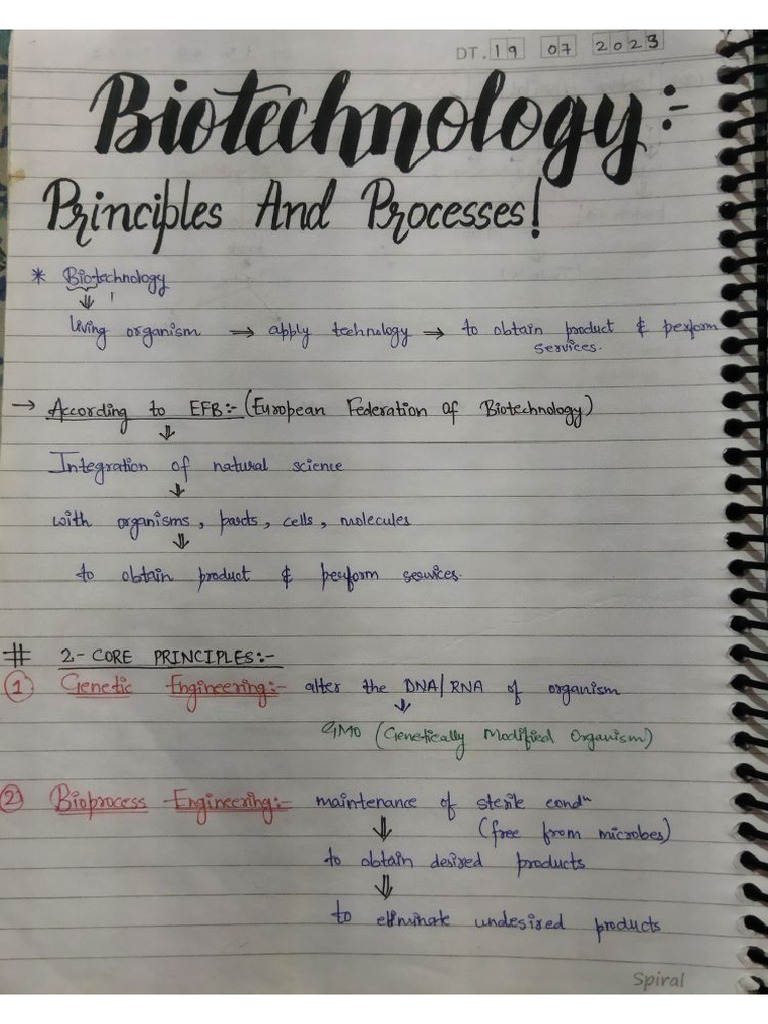 DT. 19 07 2023
Biotechnology:-
Principles And Processes!
* Biotechnology
⇓
living organism → apply technology → to obtain product & perform
services.
→ According to EFB:- (European Federation of Biotechnology)
⇓
Integration of natural science
⇓
with organisms, parts, cells, molecules
⇓
to obtain product & perform services.
# 2-CORE PRINCIPLES:-
① Genetic Engineering:- alter the DNA/RNA of organism
⇓
GMO (Genetically Modified Organism)
② Bioprocess Engineering:- maintenance of sterile condⁿ
⇓ (free from microbes)
to obtain desired products
⇓
to eliminate undesired products
Spiral